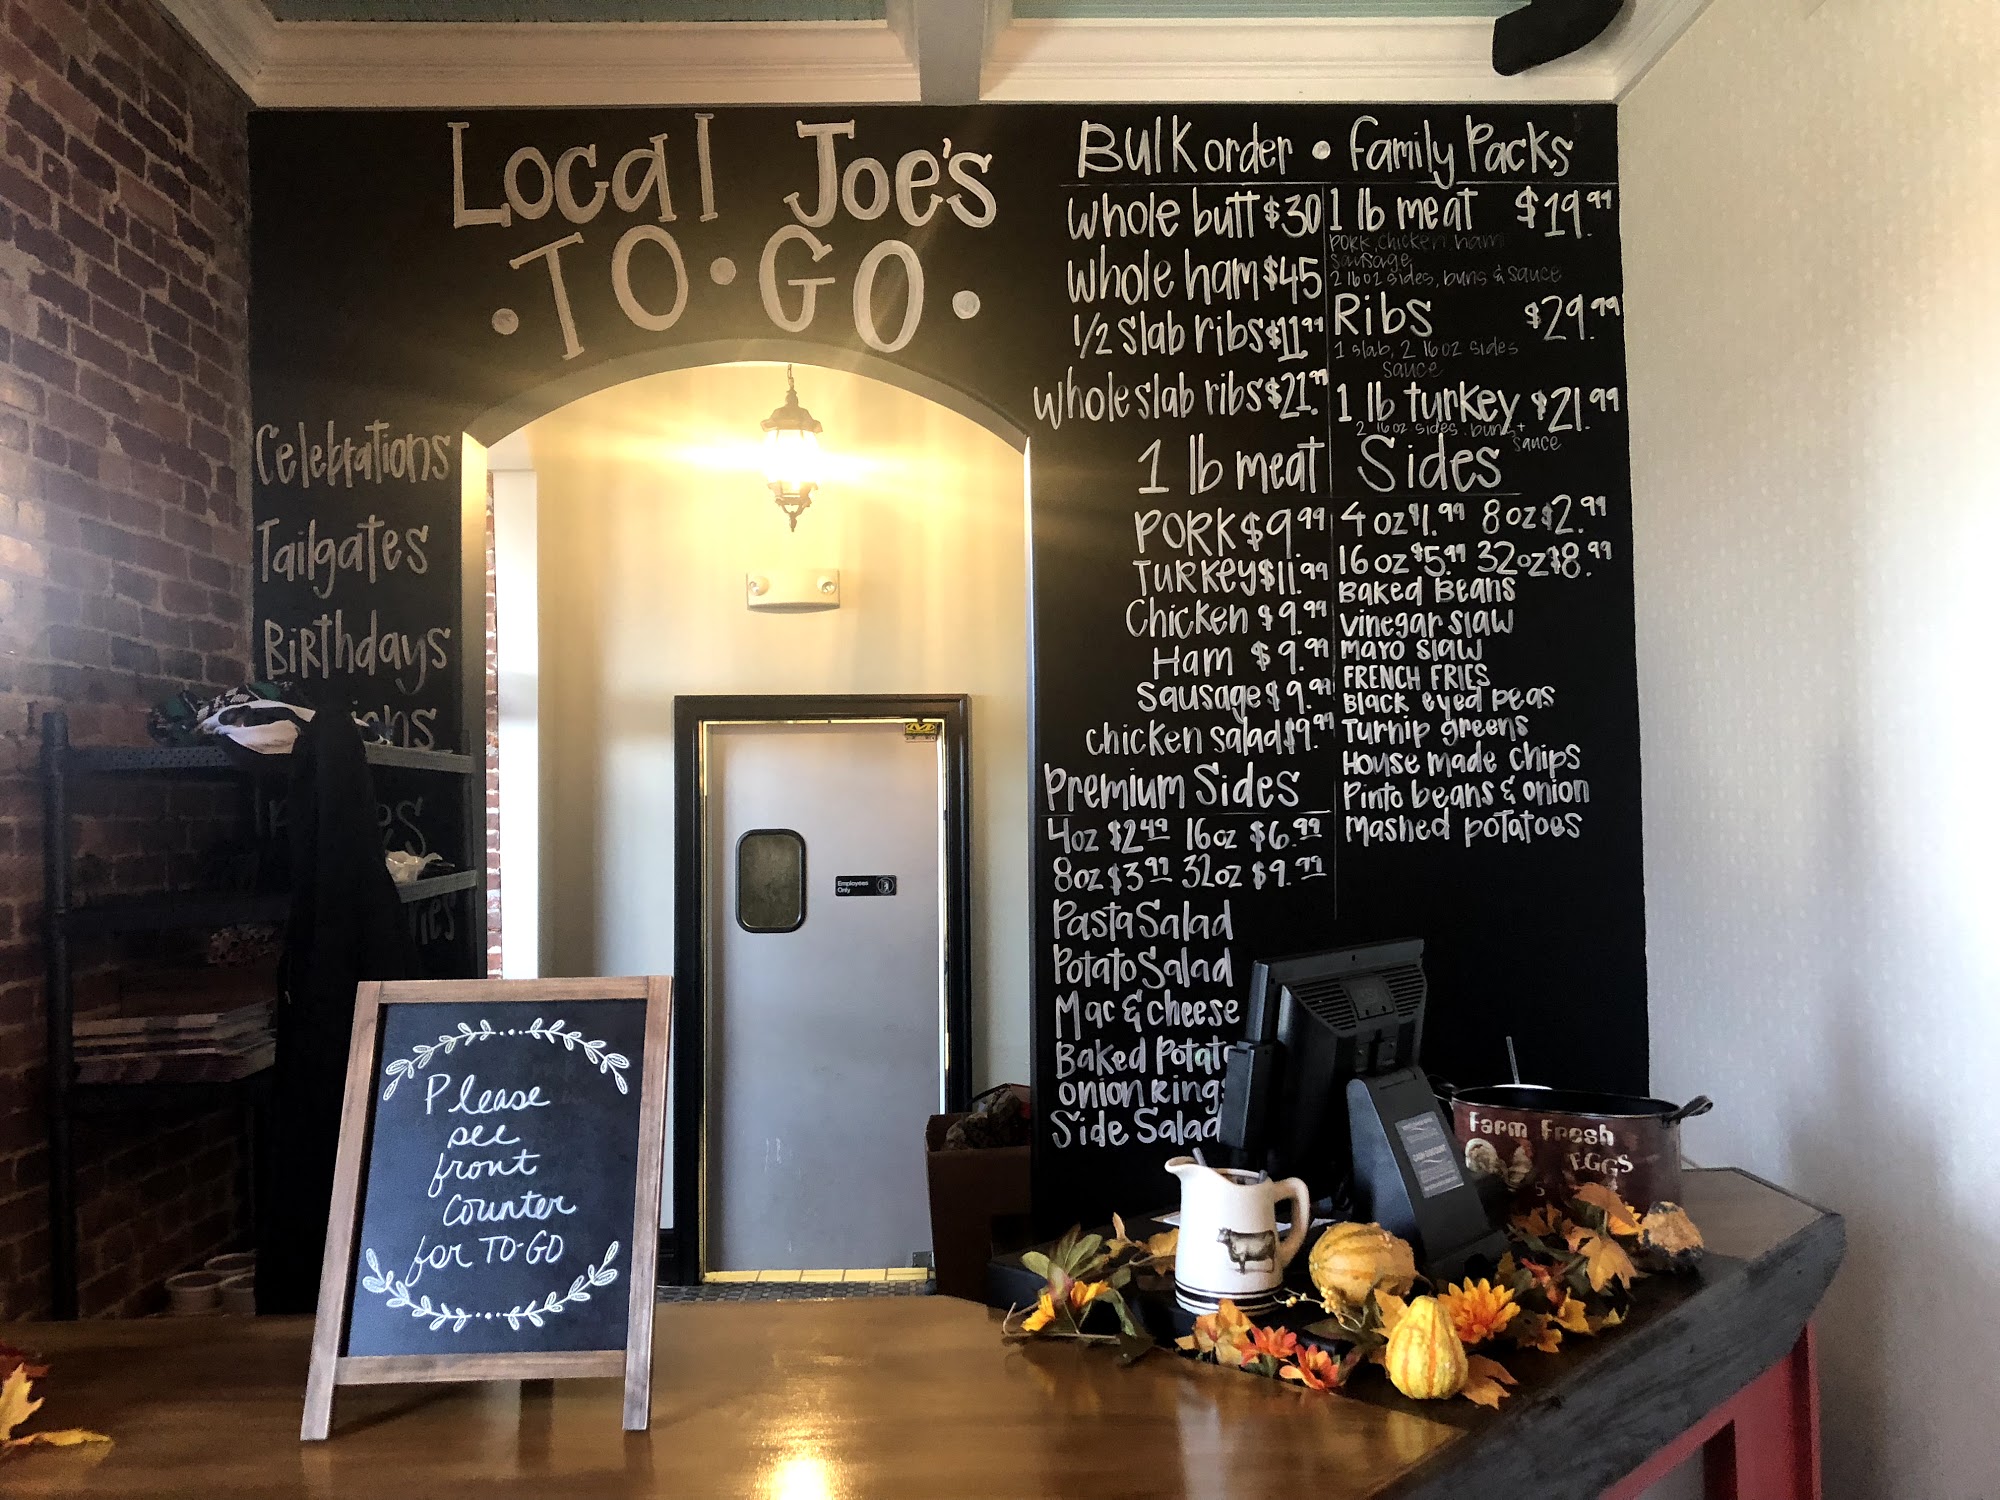 Local Joe's
• TO • GO •
Celebrations
Tailgates
Birthdays
Bulk order • Family Packs
whole butt $30
whole ham $45
1/2 slab ribs $11.99
whole slab ribs $21.99
1 lb meat
PORK $9.99
TURKEY $11.99
Chicken $9.99
Ham $9.99
Sausage $9.99
chicken salad $9.99
Premium Sides
4oz $2.49 16oz $6.99
8oz $3.99 32oz $9.99
Pasta Salad
Potato Salad
Mac & cheese
Baked Potato
onion Rings
Side Salad
1 lb meat $19.99
PORK, chicken, ham
sausage,
2 16oz sides, buns & sauce
Ribs $29.99
1 slab, 2 16oz sides
sauce
1 lb turkey $21.99
2 16oz sides, buns +
sauce
Sides
4 oz $1.99 8oz $2.99
16 oz $5.99 32oz $8.99
Baked Beans
vinegar slaw
mayo slaw
FRENCH FRIES
Black eyed peas
Turnip greens
House made chips
Pinto beans & onion
Mashed potatoes
Employees
Only
Please
see
front
counter
for TO-GO
Farm Fresh
EGGS